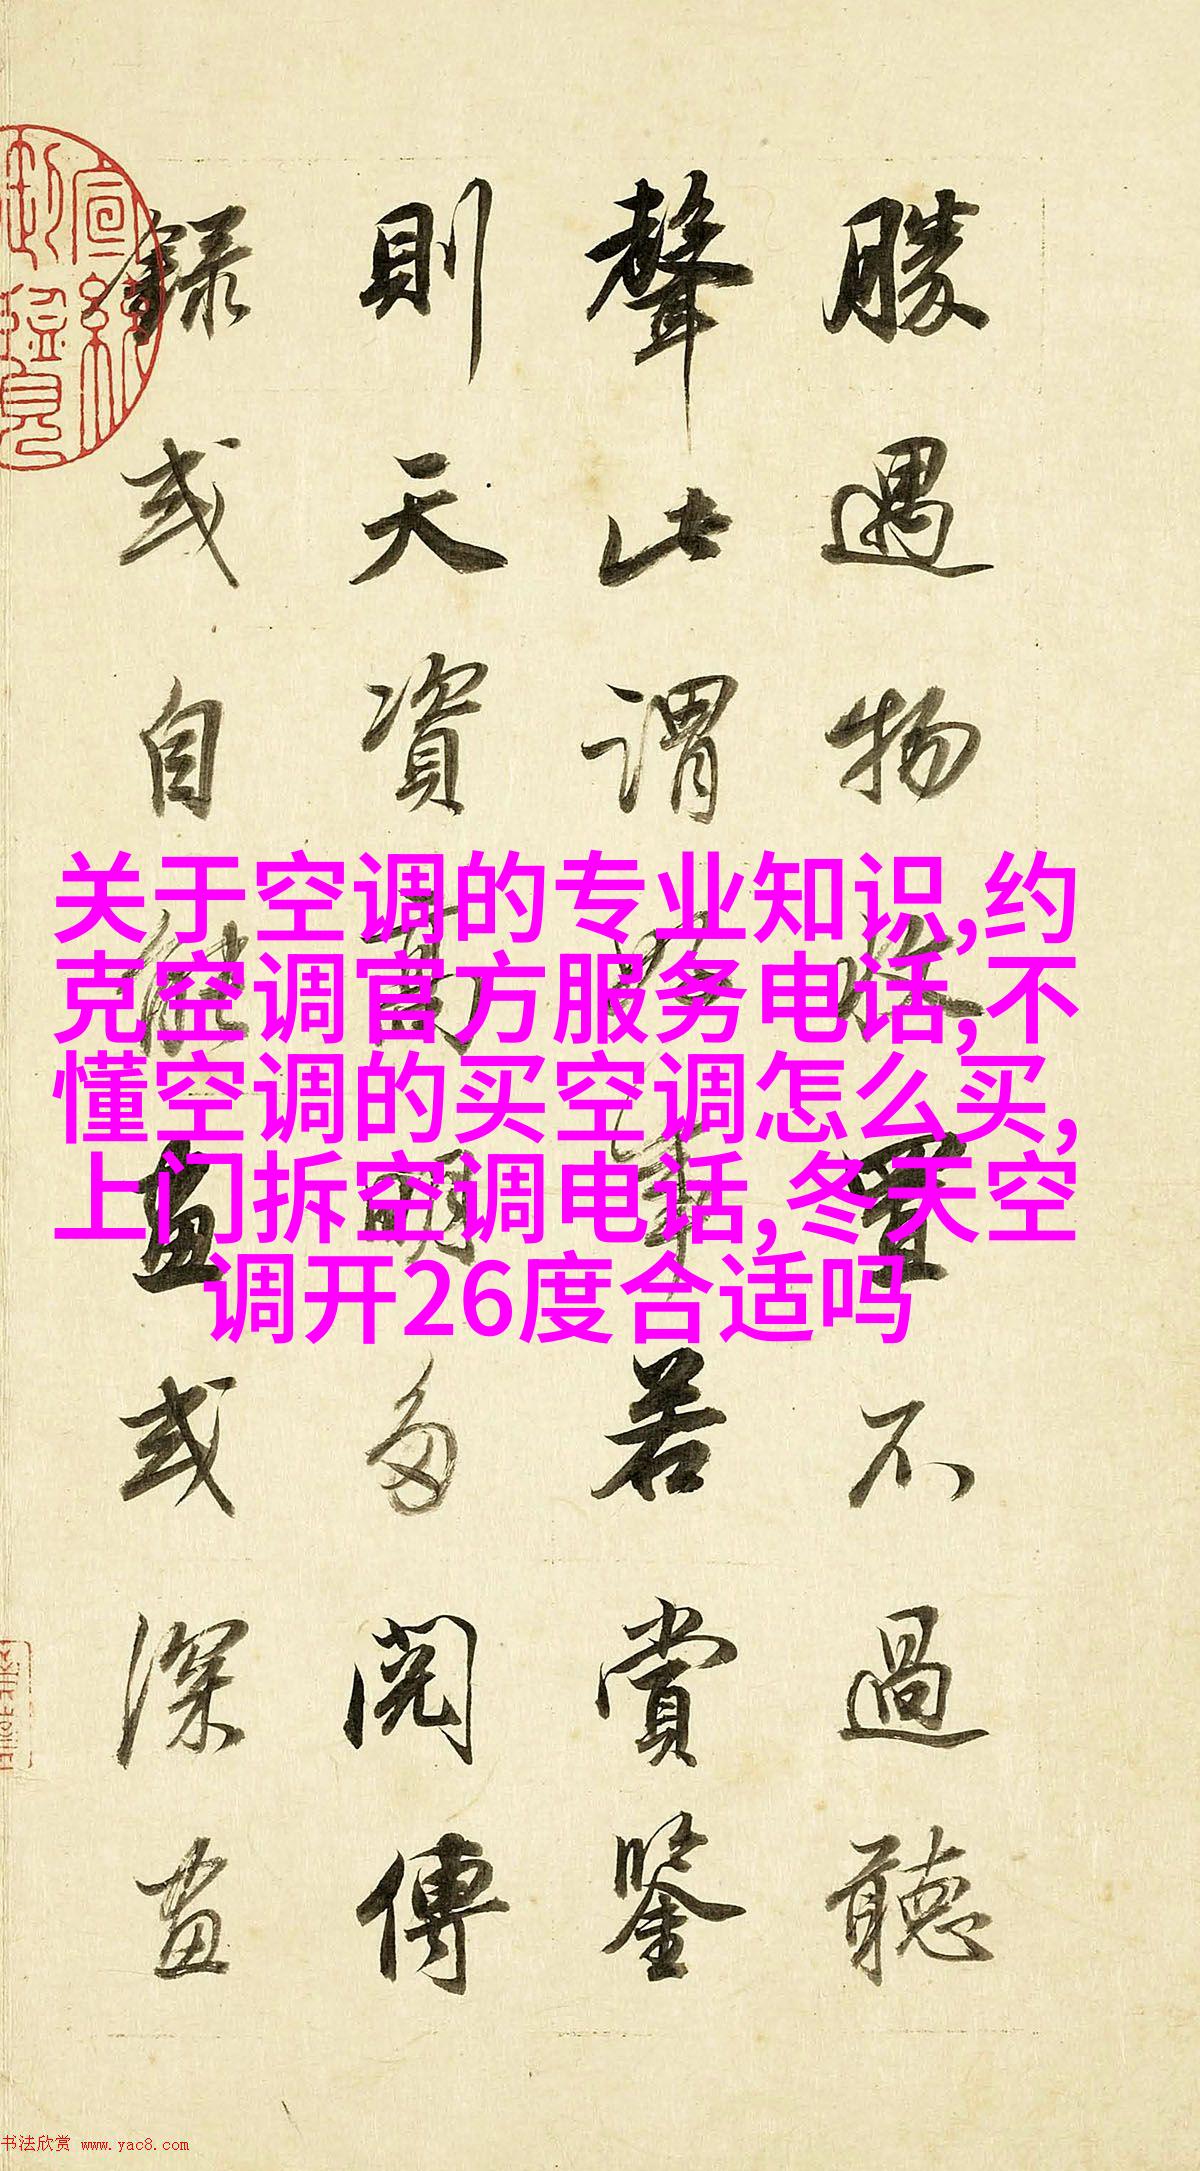 關于空调的专业知识,约
克空调官方服务电话,不
懂空调的买空调怎么买,
上门拆空调电话,冬天空
调开26度合适吗
勝遇物收置不過聽
聲此謂好事若賞鑒
則天資高明多閱傳
錄或自能畫或深畫
宣統
御覽
书法欣赏 www.yac8.com